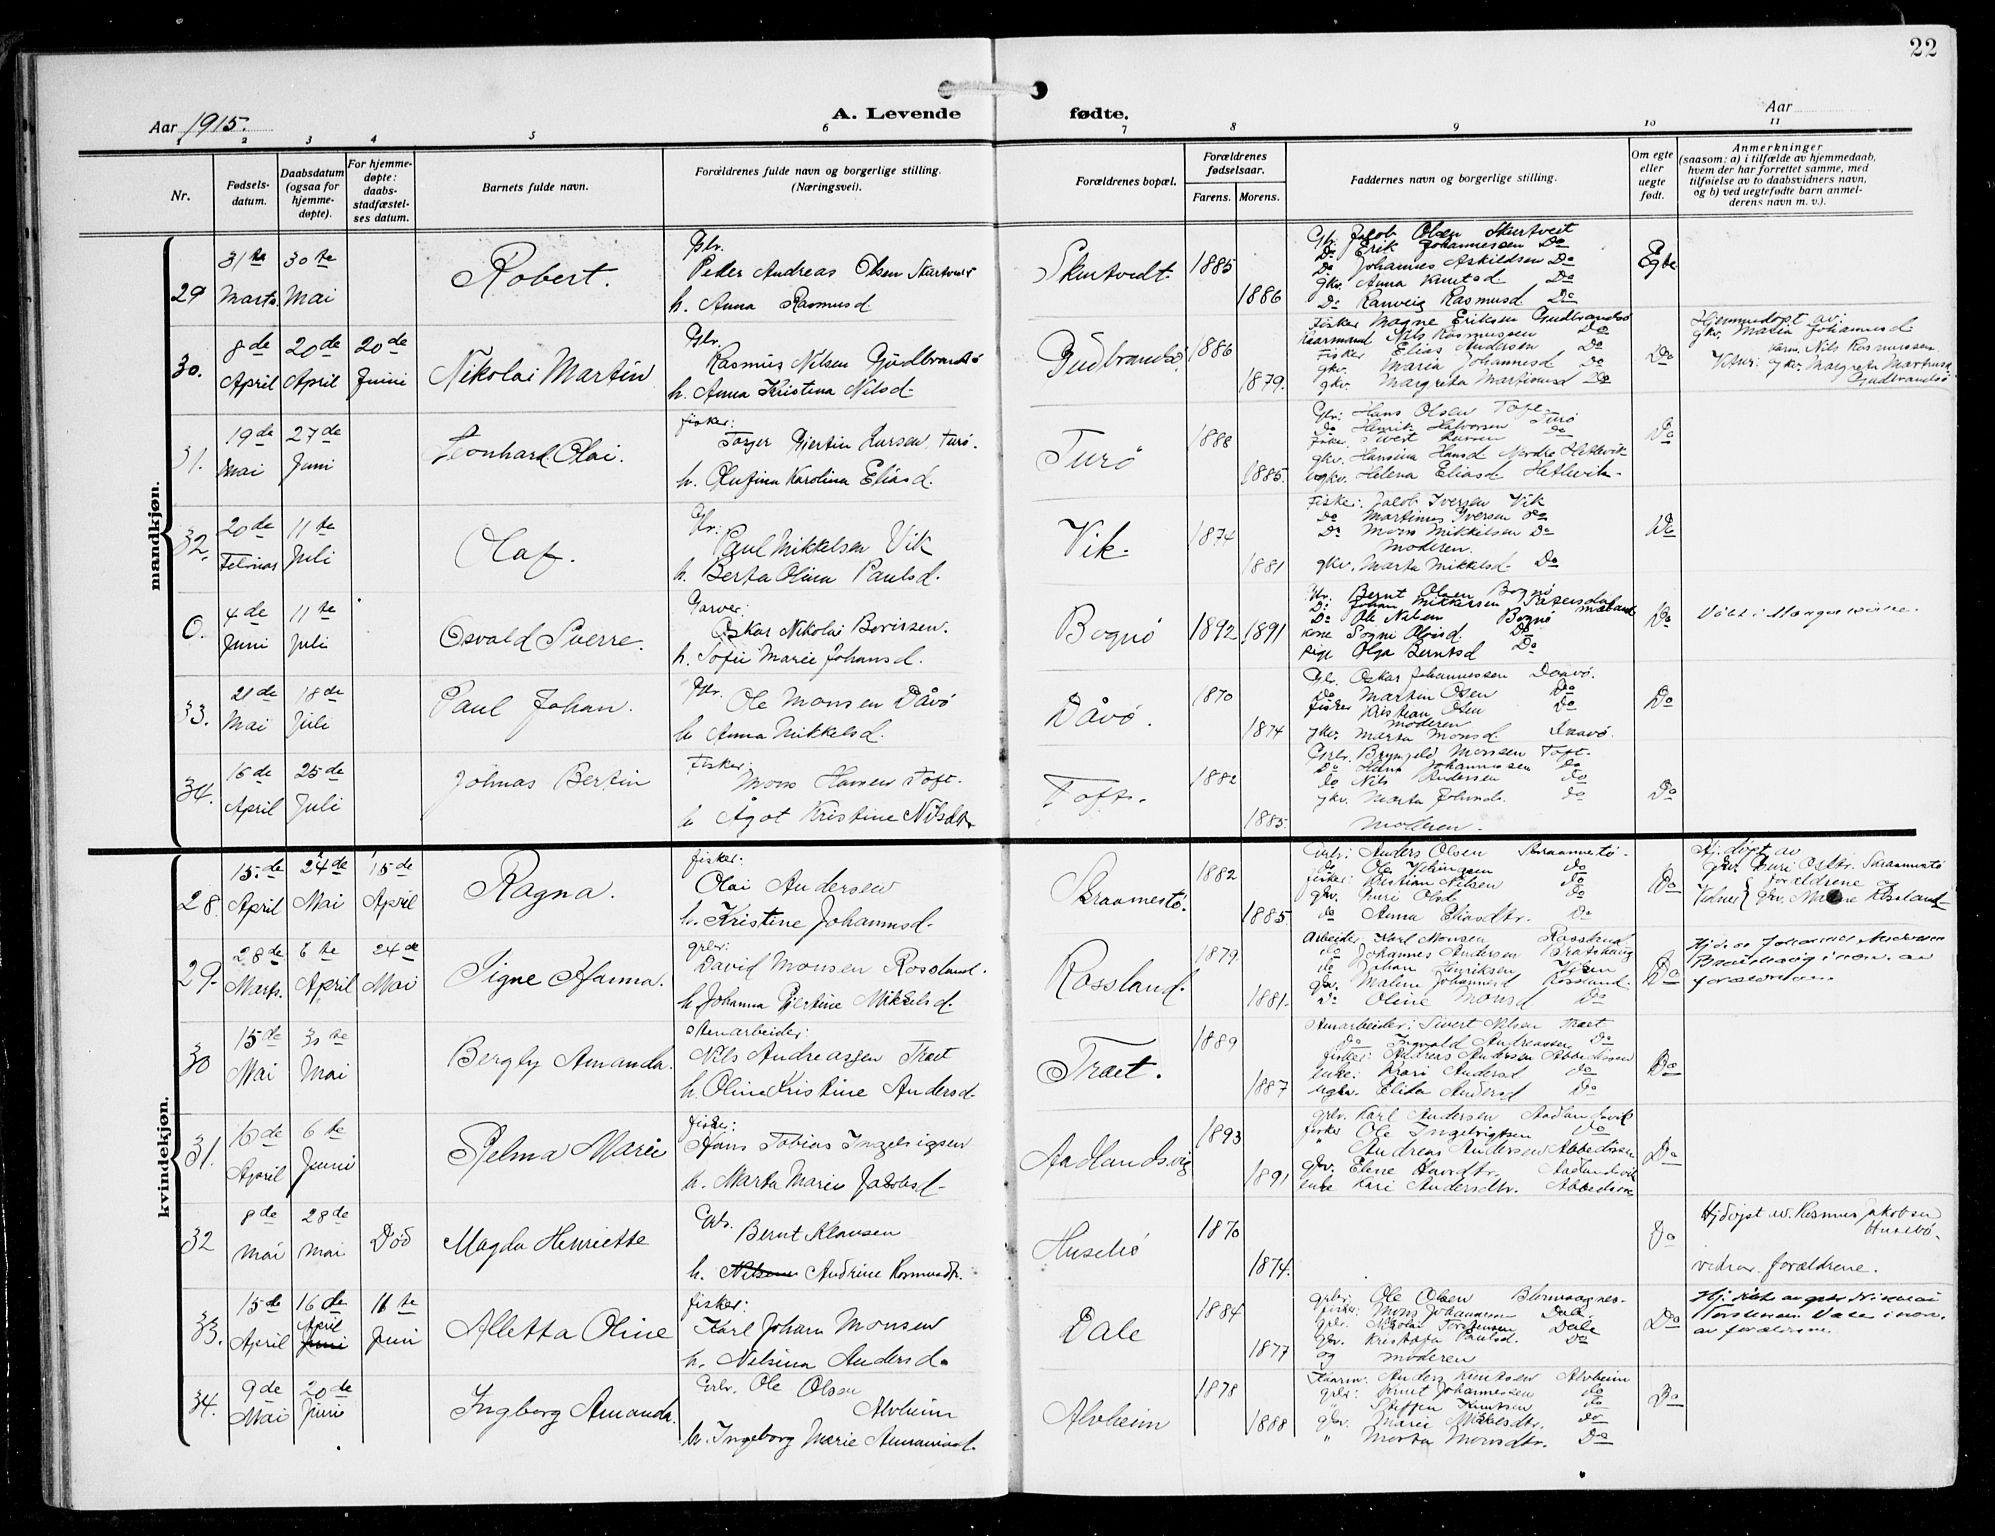 22
Aar 1915.
A. Levende fødte.
Aar
1 2 3 4 5 6 7 8 9 10 11
Nr.
Fødsels-
datum.
Daabsdatum
(ogsaa for
hjemme-
døpte).
For hjemme-
døpte:
daabs-
stadfæstel-
ses datum.
Barnets fulde navn.
Forældrenes fulde navn og borgerlige stilling.
(Næringsvei).
Forældrenes bopæl.
Forældrenes
fødselsaar.
Farens. Morens.
Faddernes navn og borgerlige stilling.
Om egte
eller
uegte
født.
Anmerkninger
(saasom: a) i tilfælde av hjemmedaab,
hvem der har forrettet samme, med
tilføielse av to daabsvidners navn,
og b) ved uegtefødte barn anmel-
derens navn m. v.).
mandkjøn.
29
31te Marts
30te Mai
Robert.
Gbr.
Peder Andreas Olsen
h. Anna Rasmusd
Skurtvedt.
1885
1886
Gbr. Jacob Olsen Skurtveit
Do Erik Johannessen Do
Do Johannes Askildsen Do
gkv. Anna Knutsd Do
Do Ranveig Rasmusd Do
Egte
30.
8de April
20de April
20de Juni
Nikolai Martin
Gbr.
Rasmus Nilsen Gudbrandsø
h. Anna Kristina Nilsd
Gudbrandsø
1886
1879.
Fisker Magne Eriksen Gudbrandsø
Nils Rasmussen Do
Fisker Elias Andersen Do
gkv. Maria Johannesd Do
gkv. Margreta Martinusd Do
Do
Hjemmedøpt av:
gkv. Maria Johannesd
Nils Rasmussen
gkv. Margreta
Gudbrandsø
31.
19de Mai
27de Juni
Leonhard Olai.
fisker:
Torger Gjertin Larsen Turø.
h. Olufina Karolina Eliasd.
Turø
1888
1885.
Gbr: Hans Olsen Toft
do Henrik Halvorsen Turø
Fisker Sivert Larsen do
gkv. Hansina Hansd Nordre Hetlevik
Helena Eliasd Hetlevik
Do
32.
20de Februar
11te Juli
Olaf.
Gbr:
Paul Mikkelsen Vik
h. Berta Olina Paulsd.
Vik.
1874
1881
Fisker: Jacob Iversen Vik
Do Martinus Iversen do
Do Mons Mikkelsen Do
moderen.
gkv. Marta Mikkelsd. Do
Do
0.
4de Juni
11te Juli
Osvald Sverre.
Garver:
Oskar Nikolai Berntsen.
h. Sofie Marie Johansd.
Bognø
1892
1891
Gbr. Bernt Olsen Bognø
Do Johan Mikkelsen
Do Ole Nilsen Bognø
Kone Sogni Do
pige Olga Berntsd Do
Do
Døbt i
33.
21de Mai
18de Juli
Paul Johan.
Gbr.
Ole Monsen Dåvø
h. Anna Mikkelsd.
Dåvø.
1870
1874
Gbr. Oskar Johannessen Daavø.
Do Martin Olsen Do
fisker Kristian Olsen Do
moderen
gkv. Marta Monsd Daavø.
Do
34.
16de April
25de Juli
Johnas Bertin
Fisker:
Mons Hansen Toft.
h. Ågot Kristine Nilsdtr
Toft.
1882
1885.
Gbr. Brynjulf Monsen Toft.
Do Hans Johannessen do
do Nils Andersen do
gkv. Marta do
moderen.
Do
kvindekjøn.
28.
15.de April
24de Mai
15de April
Ragna.
fisker:
Olai Andersen
h. Kristine Johannesd.
Skraamestø.
1882
1885.
Gbr: Anders Olsen Skraamestø.
do Ole do
fisker: Kristian Nilsen do
gkv. Guri Olsd do
do Anna Eliasdtr. Do
Do
Hj.døpt av
Guri Olsdtr. Skraamestø
forældrene
29.
28de Marts.
6te April
24de Mai
Signe Hanna.
gbr:
David Monsen Rossland.
h. Johanna Gjertine Mikkelsd.
Rossland.
1879.
1881.
Arbeider Karl Monsen Rossland
do Johannes Andersen
do Johan Henriksen
gkv. Malene Johannesd Rossland
do Oline Monsd Do
Do
forældrene
30
15de Mai
30te Mai
Bergly Amanda.
stenarbeider:
Nils Andreassen Træt
h. Oline Kristine Andersd.
Træt.
1889
1887
Stenarbeider: Sivert Nilsen Træt
Do Ingvald Andreassen Do
fisker: Anders Andersen Abbedissen
enke: Kari Andersd do
Elida Andersd Do
Do
31.
16de April
6te Juni
Hjelma Marie
fisker:
Hans Tobias Ingebrigtsen
h. Marta Marie Jacobsd.
Aadlandsvig
1893
1891
gbr. Karl Andersen Aadlandsvik
fisker Ole Ingebrigtsen Do
" Andreas Andersen Abbedissen
gkv. Elene Aadlandsvik
enke Kari Andersdtr. Abbedissen
Do
32
8de Mai
28de Mai
Død
Magda Henriette
Gbr.
Bernt Klausen
h. Andrine Rasmusdtr.
Husebø
1870
1874.
Do
Hjdøpt av Rasmus Jakobsen
Husebø.
vidner. forældrene.
33.
15de April
16de April Juni
11te Juni
Alletta Oline
fisker:
Karl Johan Monsen
h. Nelsina Andersd.
Dale
1884
1877
gbr: Ole Olsen
fisker: Mons Johannessen Dale
gbr. Nikolai Torstensen Dale
gkv. Kristofa Paulsd. Do
og moderen
Do
Hj. døbt av gbr Nikolai
Torstensen Dale i
av forældrene
34.
9de Mai
20de Juni
Ingborg Amanda.
Gbr. Ole Olsen
Alvheim
h. Ingeborg Marie
Alvheim
1878
1888
Anders Knutsen Alvheim
gbr: Knut Johannessen do
" Steffen Knutsen do
gkv. Marie Mikkelsdtr. do
" Marta Monsdtr. Do
Do